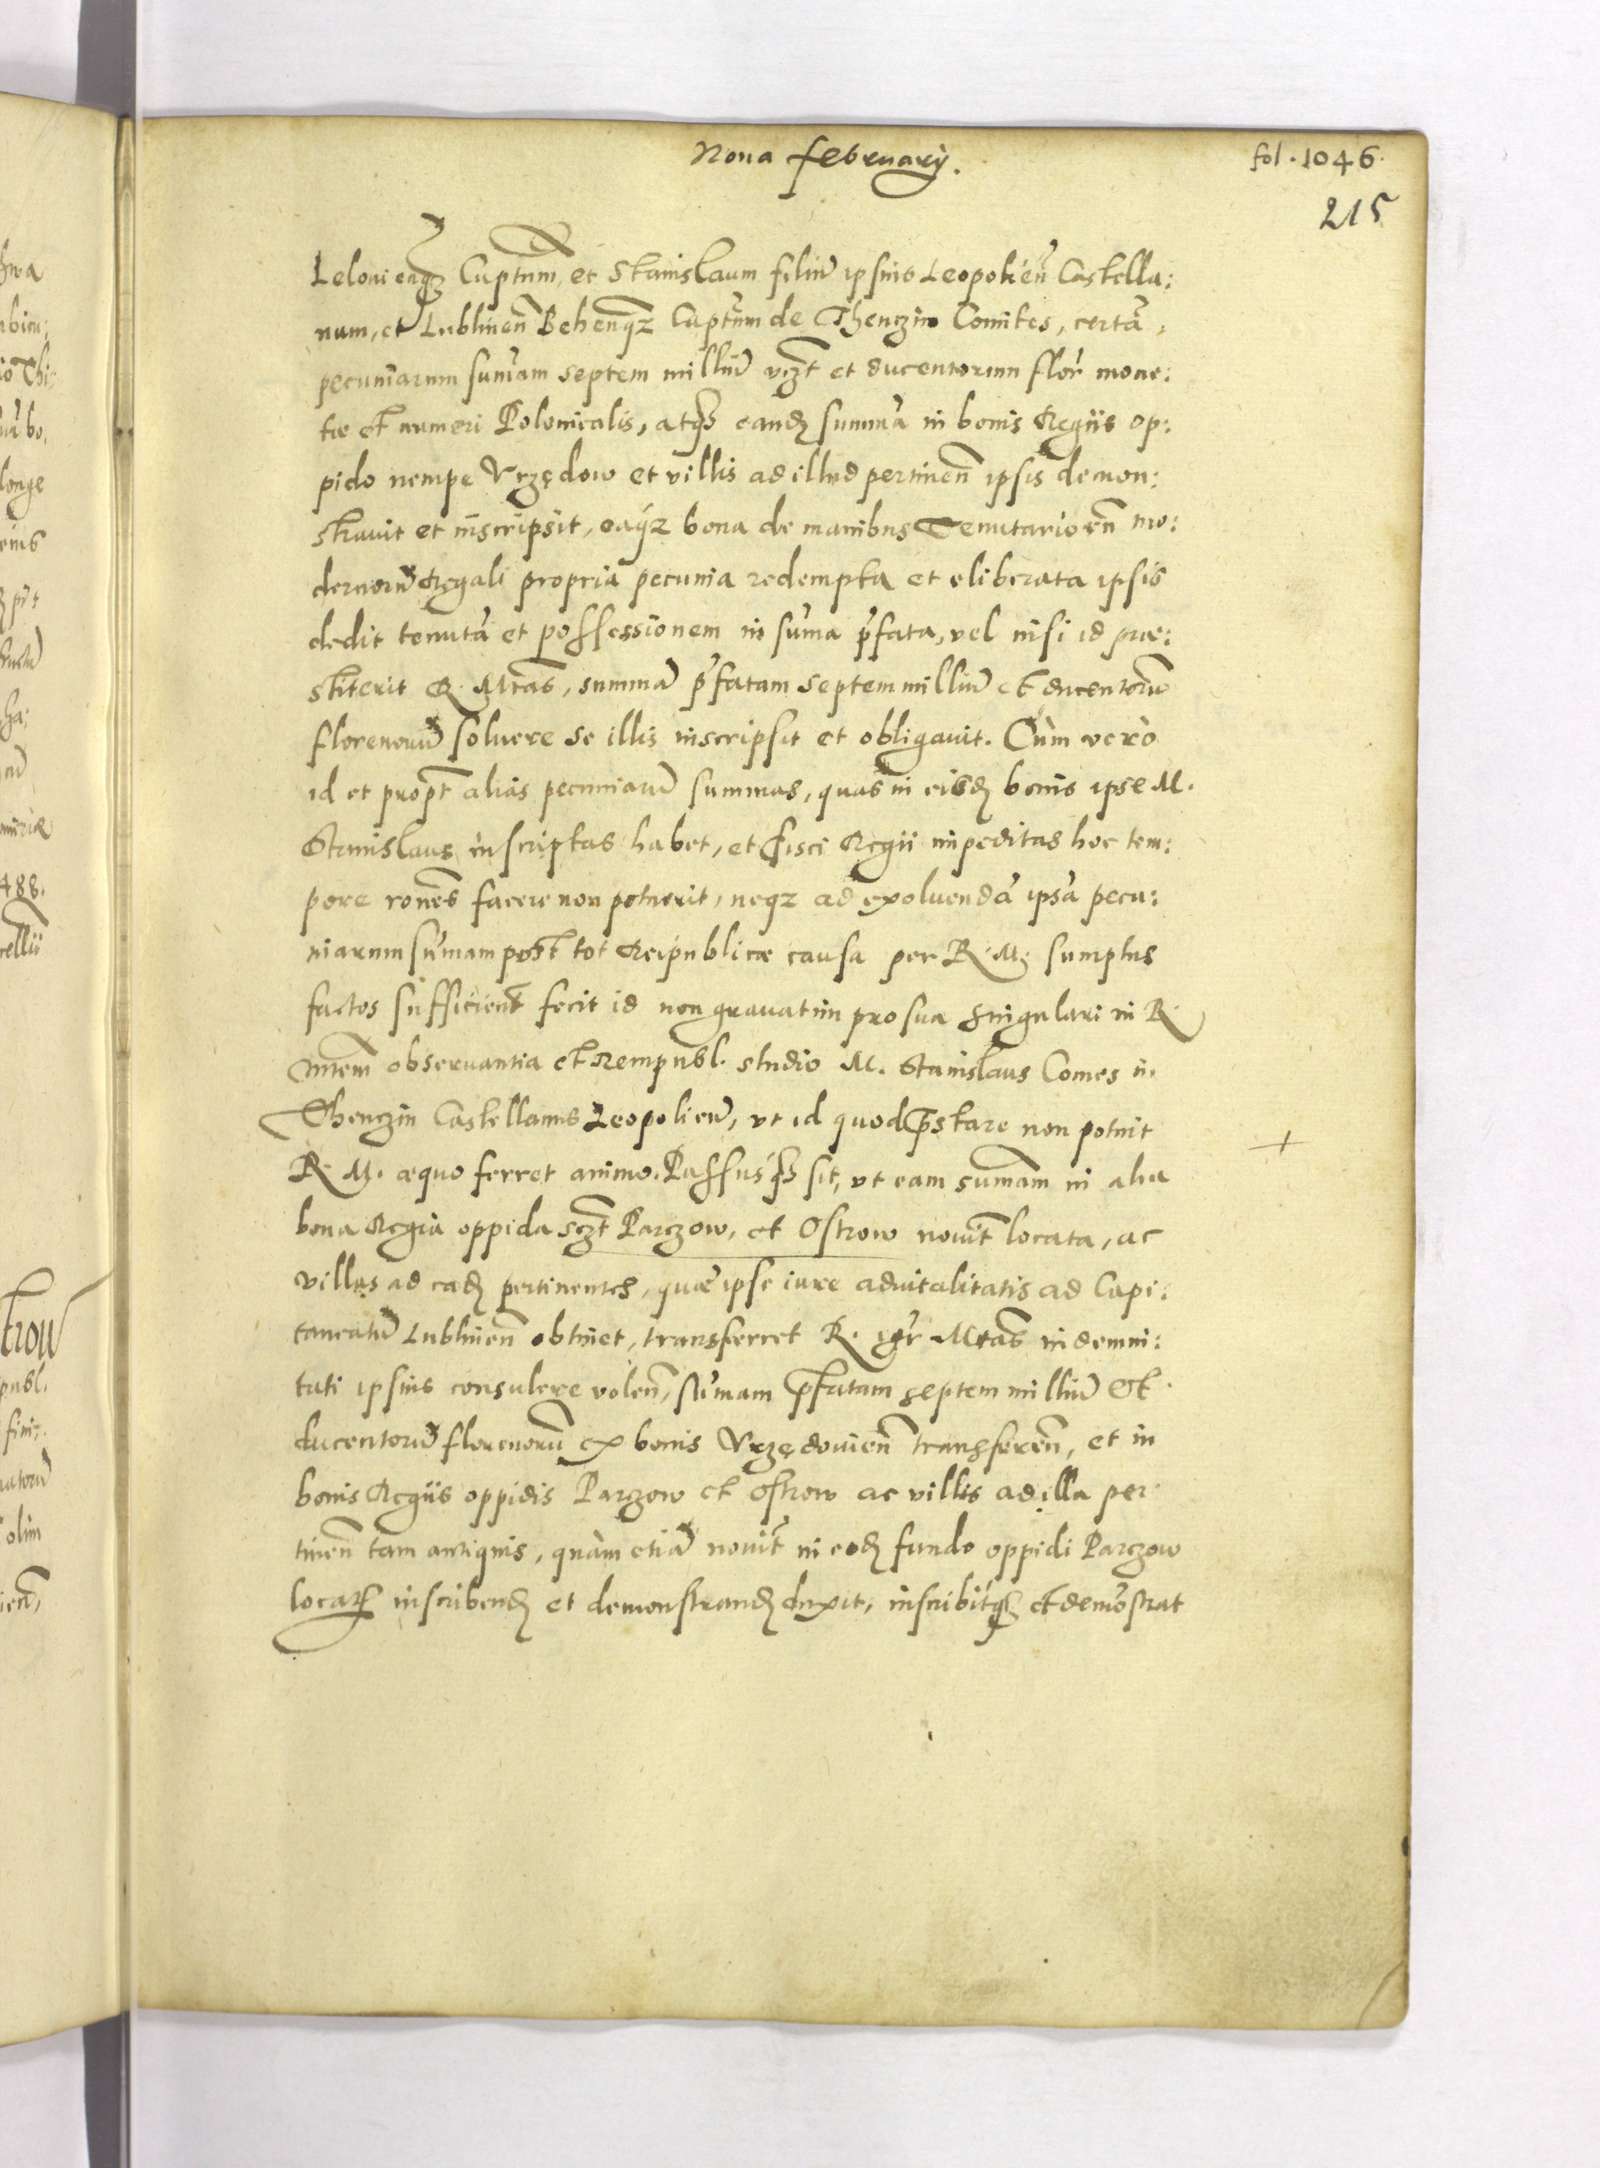 Nona february.
fol. 1046.
215
Leloviensqz Captnm, et Stanislaum filiu ipsius Leopolien Castella:
num, et Lublinen Belzensqz Captnm de Thenczin Comites, certā,
pecuniarum sumam septem milliu vczt et ducentorum flor mone:
tæ et numeri Polonicalis, atqz eandȩ summā in bonis Regiis op:
pido nempe Vrzędow et villis ad illud pertinen ipsis demon:
stravit et inscripsit, eaqz bona de manibus Tenutariorum mo:
dernorū Regali propria pecunia redempta et eliberata ipsis
dedit tenutā et possessionem in sūma p̄fata, vel nisi id præ:
stiterit R. Mtas, summā p̄fatam septem milliū et ducentorū
florenorū solvere se illis inscripsit et obligavit. Cùm verò
id et propt alias pecuniarū summas, quas in eisdȩ bonis ipse M.
Stanislaus inscriptas habet, et fisci Regii impeditas hoc tem:
pore rones facere non potuerit, neqz ad exoluendā ipsā pecu:
niarum sūmam post tot Reipublicæ causa per R. M. sumptus
factos sufficient fecit id non gravatim pro sua singulari in R.
Mtem observantia et Rempubl. studio M. Stanislaus Comes in
Thenczin Castellanus Leopolien, ut id quod p̄stare non potuit
R. M. æquo ferret animo. Passusqz sit, ut eam sumam in alia
bona Regia oppida sczt Parczow, et Ostrow novit locata, ac
villas ad eadȩ pertinentes, quæ ipse iure advitalitatis ad Capi:
taneatū Lublinen obtinet, transferret R. igr Mtas indemni:
tati ipsius consulere volen, sūmam p̄fatam septem milliū et
ducentorū florenorū ex bonis Vrzędovien transferen, et in
bonis Regiis oppidis Parczow et Ostrow ac villis ad illa per
tinen tam antiquis, quàm etiā novit in eodȩ fundo oppidi Parczow
locat inscribendȩ et demonstrandȩ duxit, inscribitqz et demōstrat